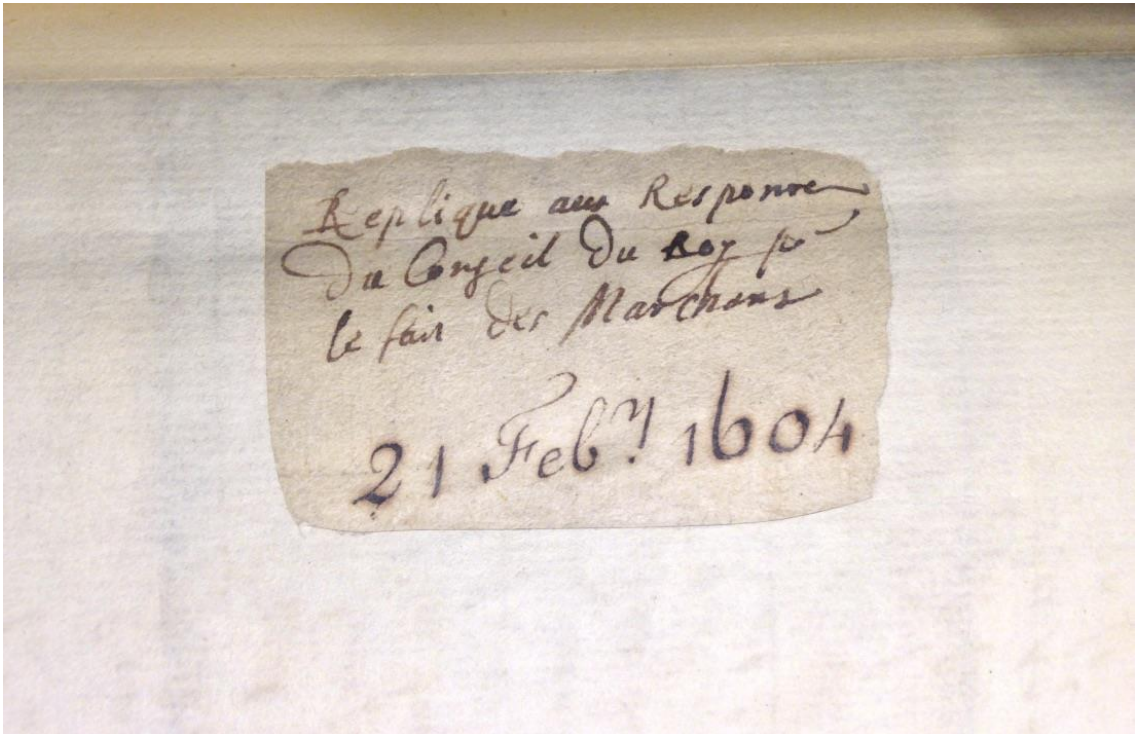 Replique aux Responce
du Conseil du Roy pr
le fait des Marchans
21 Feb.y 1604